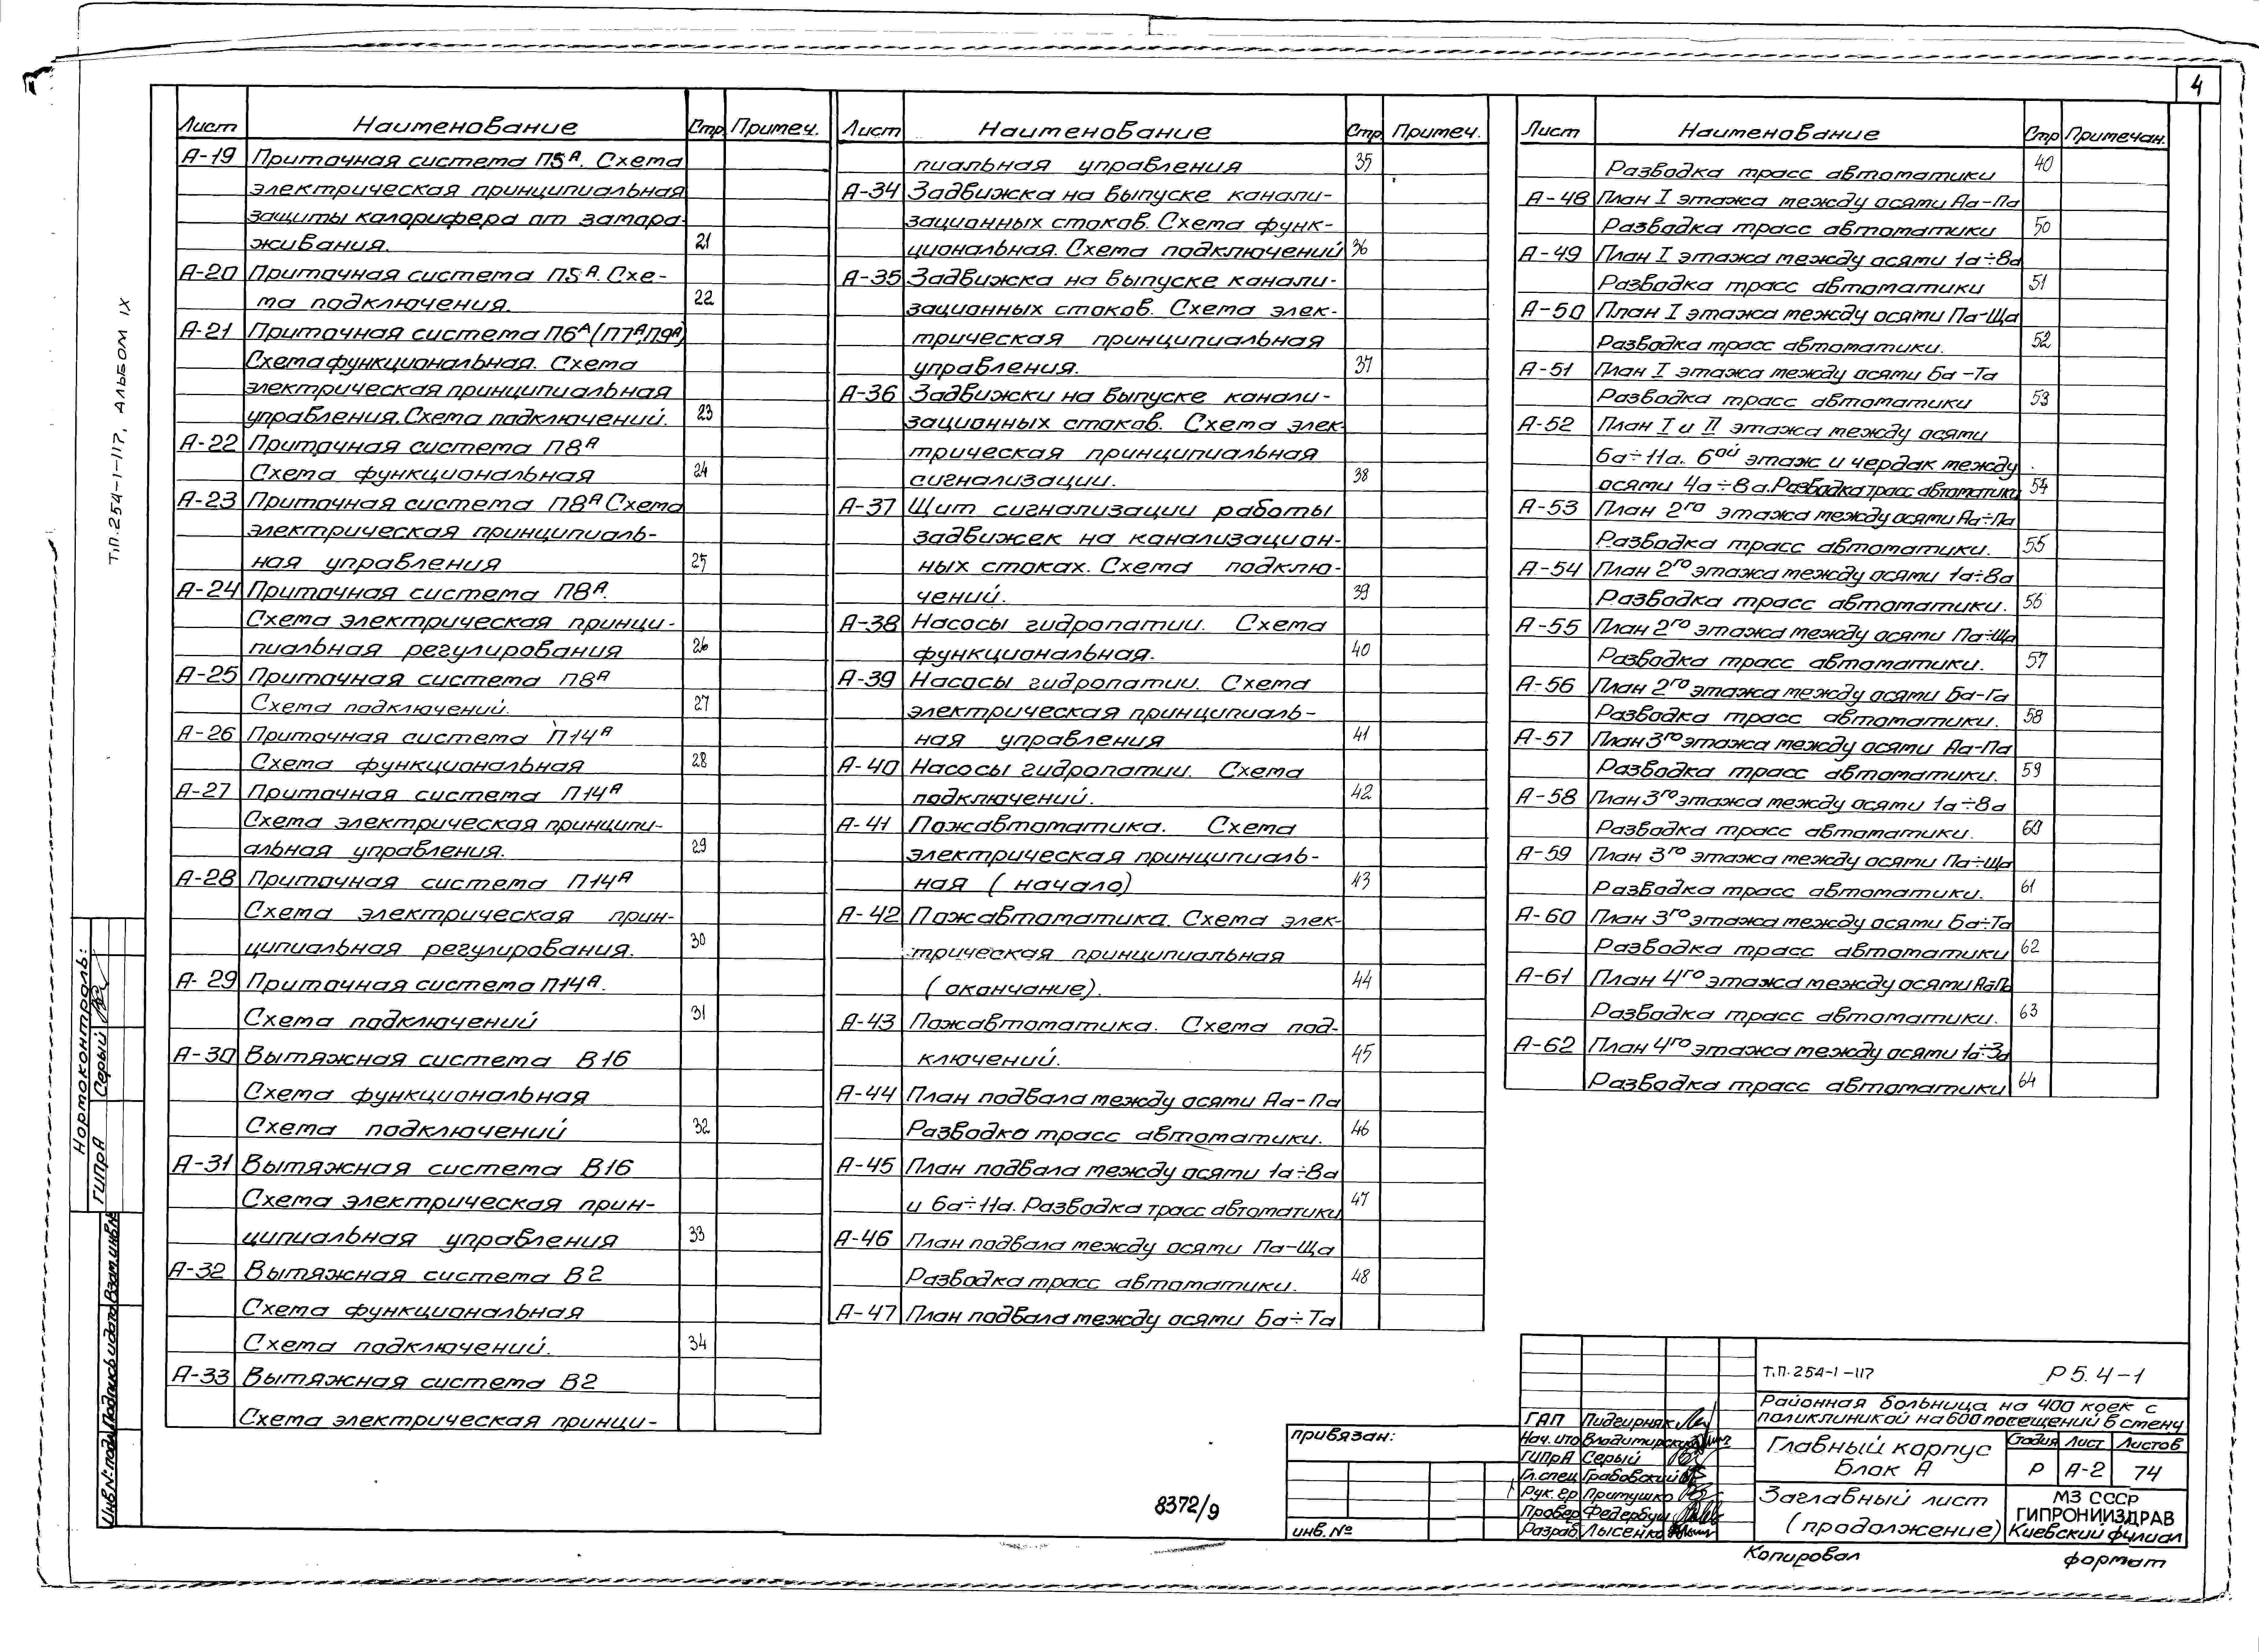 4
Лист Наименование Стр Примеч.
А-19 Приточная система П5А. Схема
электрическая принципиальная
защиты калорифера от замора-
живания. 21
А-20 Приточная система П5А. Схе-
ма подключения. 22
А-21 Приточная система П6А (П7А, П9А)
Схема функциональная. Схема
электрическая принципиальная
управления. Схема подключений. 23
А-22 Приточная система П8А
Схема функциональная 24
А-23 Приточная система П8А Схема
электрическая принципиаль-
ная управления 25
А-24 Приточная система П8А.
Схема электрическая принци-
пиальная регулирования 26
А-25 Приточная система П8А
Схема подключений. 27
А-26 Приточная система П14А
Схема функциональная 28
А-27 Приточная система П14А
Схема электрическая принципи-
альная управления. 29
А-28 Приточная система П14А
Схема электрическая прин-
ципиальная регулирования. 30
А-29 Приточная система П14А.
Схема подключений 31
А-30 Вытяжная система В16
Схема функциональная
Схема подключений 32
А-31 Вытяжная система В16
Схема электрическая прин-
ципиальная управления 33
А-32 Вытяжная система В2
Схема функциональная
Схема подключений. 34
А-33 Вытяжная система В2
Схема электрическая принци-
Лист Наименование Стр Примеч.
пиальная управления 35
А-34 Задвижка на выпуске канали-
зационных стоков. Схема функ-
циональная. Схема подключений 36
А-35 Задвижка на выпуске канали-
зационных стоков. Схема элек-
трическая принципиальная
управления. 37
А-36 Задвижки на выпуске канали-
зационных стоков. Схема элек-
трическая принципиальная
сигнализации. 38
А-37 Щит сигнализации работы
задвижек на канализацион-
ных стоках. Схема подклю-
чений. 39
А-38 Насосы гидропатии. Схема
функциональная. 40
А-39 Насосы гидропатии. Схема
электрическая принципиаль-
ная управления 41
А-40 Насосы гидропатии. Схема
подключений. 42
А-41 Пожавтоматика. Схема
электрическая принципиаль-
ная (начало) 43
А-42 Пожавтоматика. Схема элек-
трическая принципиальная
(окончание). 44
А-43 Пожавтоматика. Схема под-
ключений. 45
А-44 План подвала между осями Аа-Па
Разводка трасс автоматики. 46
А-45 План подвала между осями 1а÷8а
и 6а÷11а. Разводка трасс автоматики 47
А-46 План подвала между осями Па-Ща
Разводка трасс автоматики. 48
А-47 План подвала между осями Ба÷Та
Лист Наименование Стр Примечан.
Разводка трасс автоматики 40
А-48 План I этажа между осями Аа-Па
Разводка трасс автоматики 50
А-49 План I этажа между осями 1а÷8а
Разводка трасс автоматики 51
А-50 План I этажа между осями Па-Ща
Разводка трасс автоматики. 52
А-51 План I этажа между осями Ба-Та
Разводка трасс автоматики 53
А-52 План I и II этажа между осями
6а÷11а. 6ой этаж и чердак между
осями 4а÷8а. Разводка трасс автоматики 54
А-53 План 2го этажа между осями Аа÷Па
Разводка трасс автоматики. 55
А-54 План 2го этажа между осями 1а÷8а
Разводка трасс автоматики. 56
А-55 План 2го этажа между осями Па÷Ща
Разводка трасс автоматики. 57
А-56 План 2го этажа между осями Ба-Га
Разводка трасс автоматики. 58
А-57 План 3го этажа между осями Аа-Па
Разводка трасс автоматики. 59
А-58 План 3го этажа между осями 1а÷8а
Разводка трасс автоматики. 60
А-59 План 3го этажа между осями Па÷Ща
Разводка трасс автоматики. 61
А-60 План 3го этажа между осями Ба÷Та
Разводка трасс автоматики 62
А-61 План 4го этажа между осями Аа-Па
Разводка трасс автоматики. 63
А-62 План 4го этажа между осями 1а÷3а
Разводка трасс автоматики 64
Т.П. 254-1-117, АЛЬБОМ IX
Нормоконтроль:
ГИПрА Серый
Взам.инв.№
Подпись и дата
Инв.№подл.
8372/9
привязан:
инв. №
ГАП Пидгирняк
Нач. ИТО Владимирский
ГИПрА Серый
Гл.спец Грабовский
Рук.гр Притушко
Провер Федербуш
Разраб Лысенко
Т.П. 254-1-117 Р 5.4-1
Районная больница на 400 коек с
поликлиникой на 600 посещений в смену
Главный корпус
Блок А
Стадия Лист Листов
Р А-2 74
Заглавный лист
(продолжение)
МЗ СССР
ГИПРОНИИЗДРАВ
Киевский филиал
Копировал формат